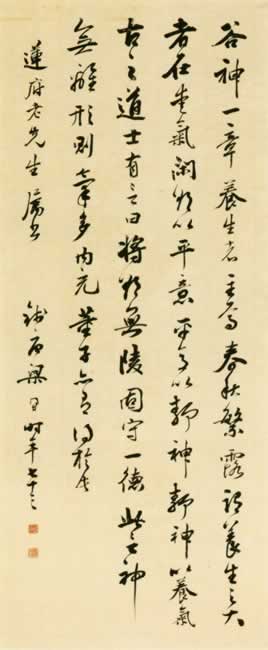 谷神一章養生者主焉春秋繁露謂養生之大
者在愛氣閑欲以平意平意以靜神靜神以養氣
古之道士有言曰將欲無陵固守一德此言神
無離形則氣多內充董子亦有得於
蓮府老先生屬書
梁同時年七十三